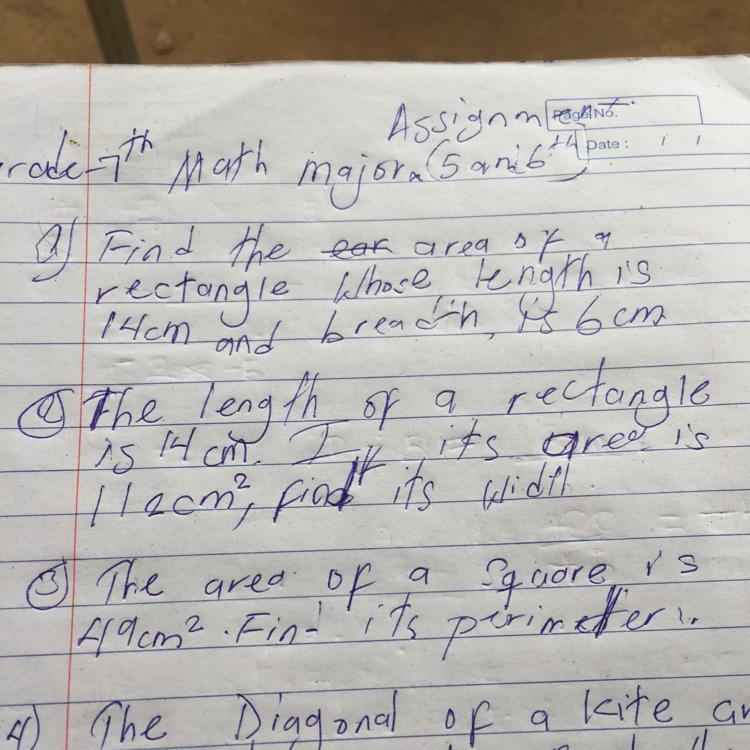 Assignment.
Page No.
Date : / /
rade-7th Math major (5 and 6th)
a) Find the ear area of a
rectangle whose length is
14cm and breadth, is 6cm
② The length of a rectangle
is 14cm. If its area is
112cm², find it its width
③ The area of a square is
49cm². Find its perimetter.
4) The Diagonal of a kite an